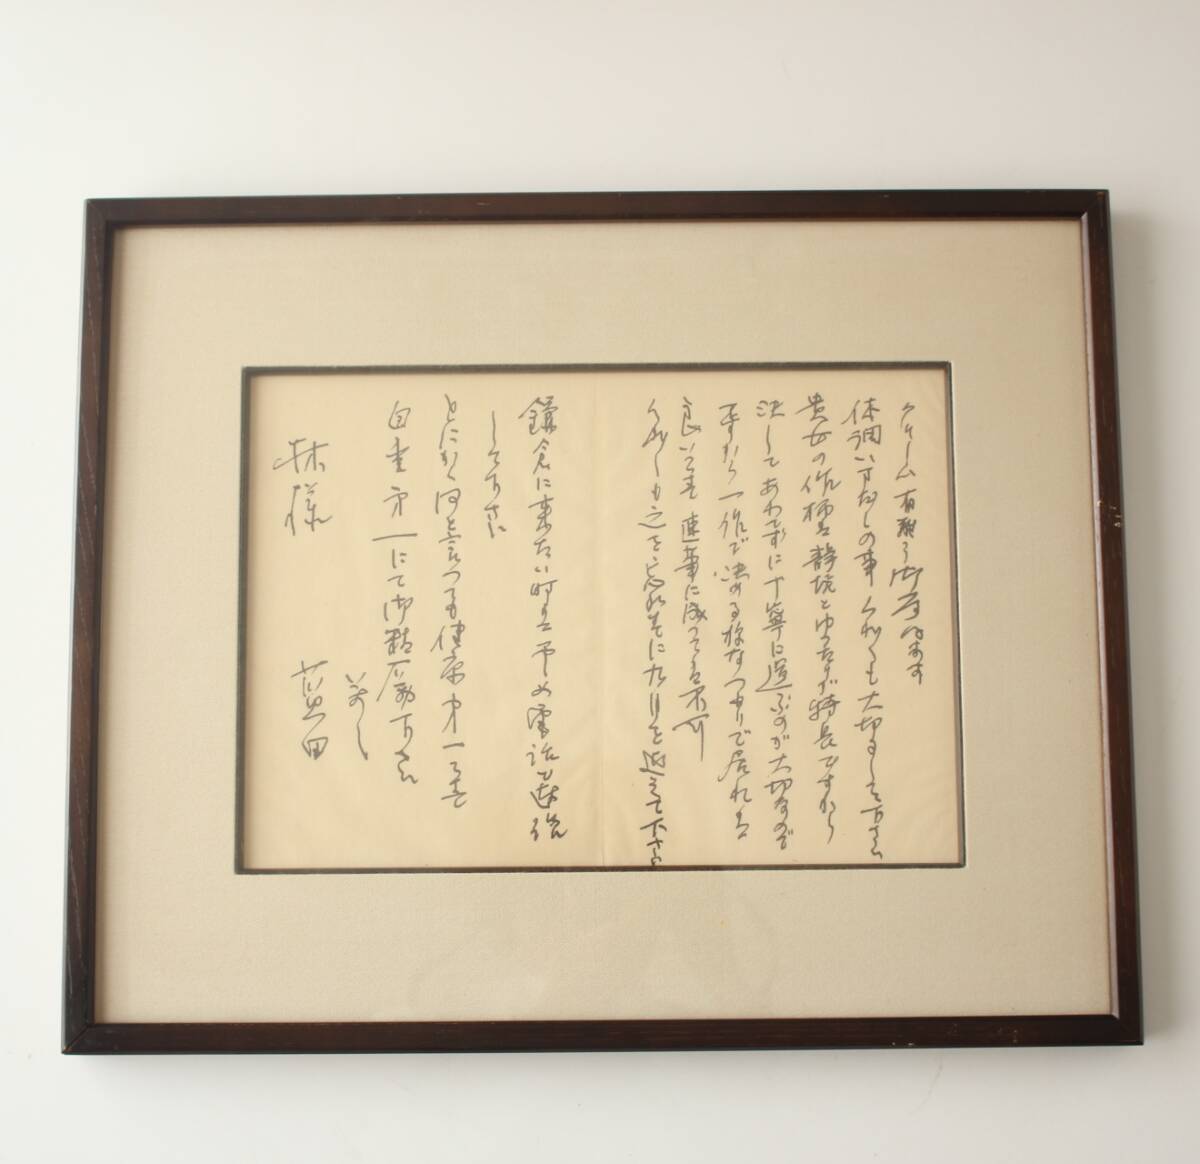 クリーム有難う御座います
体調いまだしの事 くれぐれも大切にして下さい
貴女の作柄は静境とゆったりが特長ですから
決してあわてずに丁寧に運ぶのが大切なので
すから一作で決める様なつもりで居れば
良いです 連筆に成っては不可
くれぐれも之を忘れずに九月を迎えて下さい
鎌倉に来たい時は予め電話連絡
して下さい
とにかく何と言っても健康第一です
自重第一にて御精励下さい
草々
林様